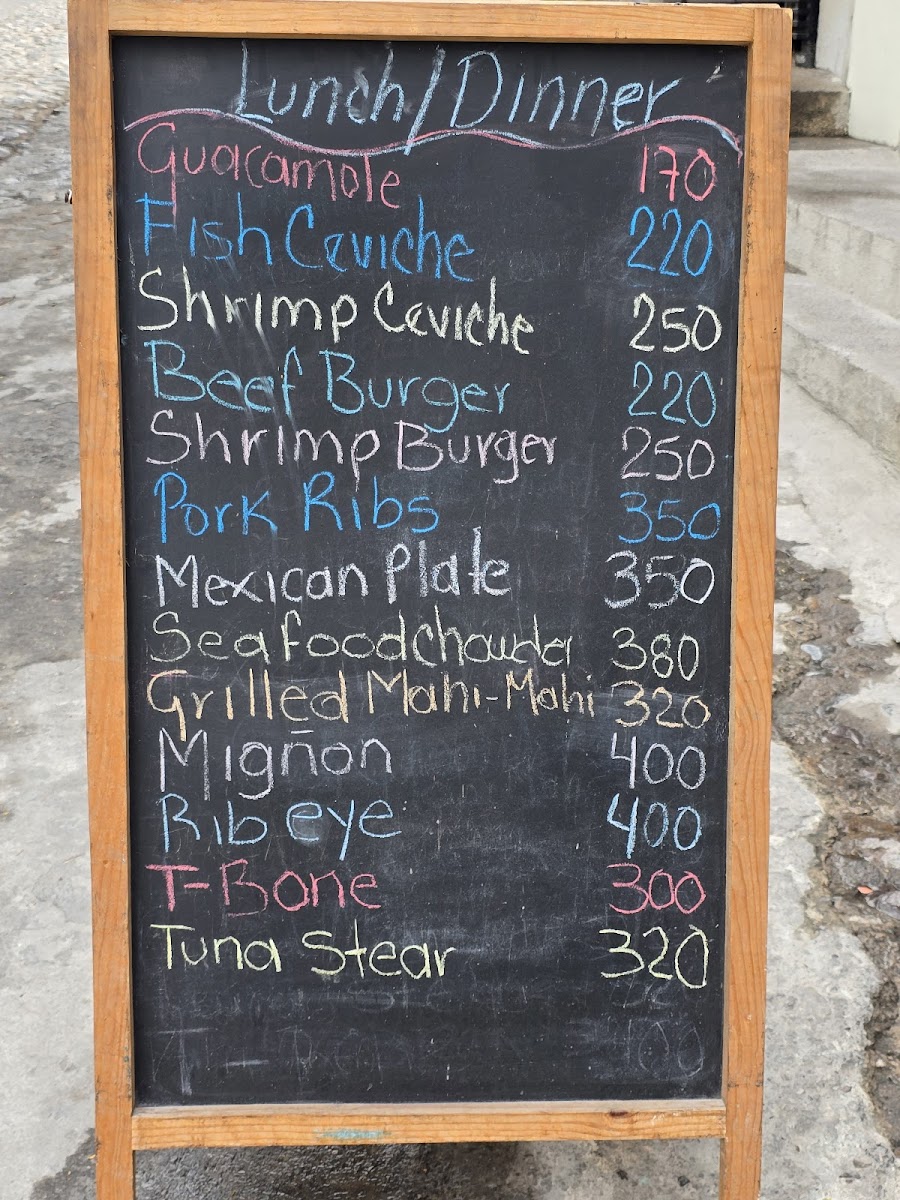 Lunch/Dinner
Guacamole 170
Fish Ceviche 220
Shrimp Ceviche 250
Beef Burger 220
Shrimp Burger 250
Pork Ribs 350
Mexican Plate 350
Seafood Chowder 380
Grilled Mahi-Mahi 320
Migñon 400
Rib eye 400
T-Bone 300
Tuna Stear 320